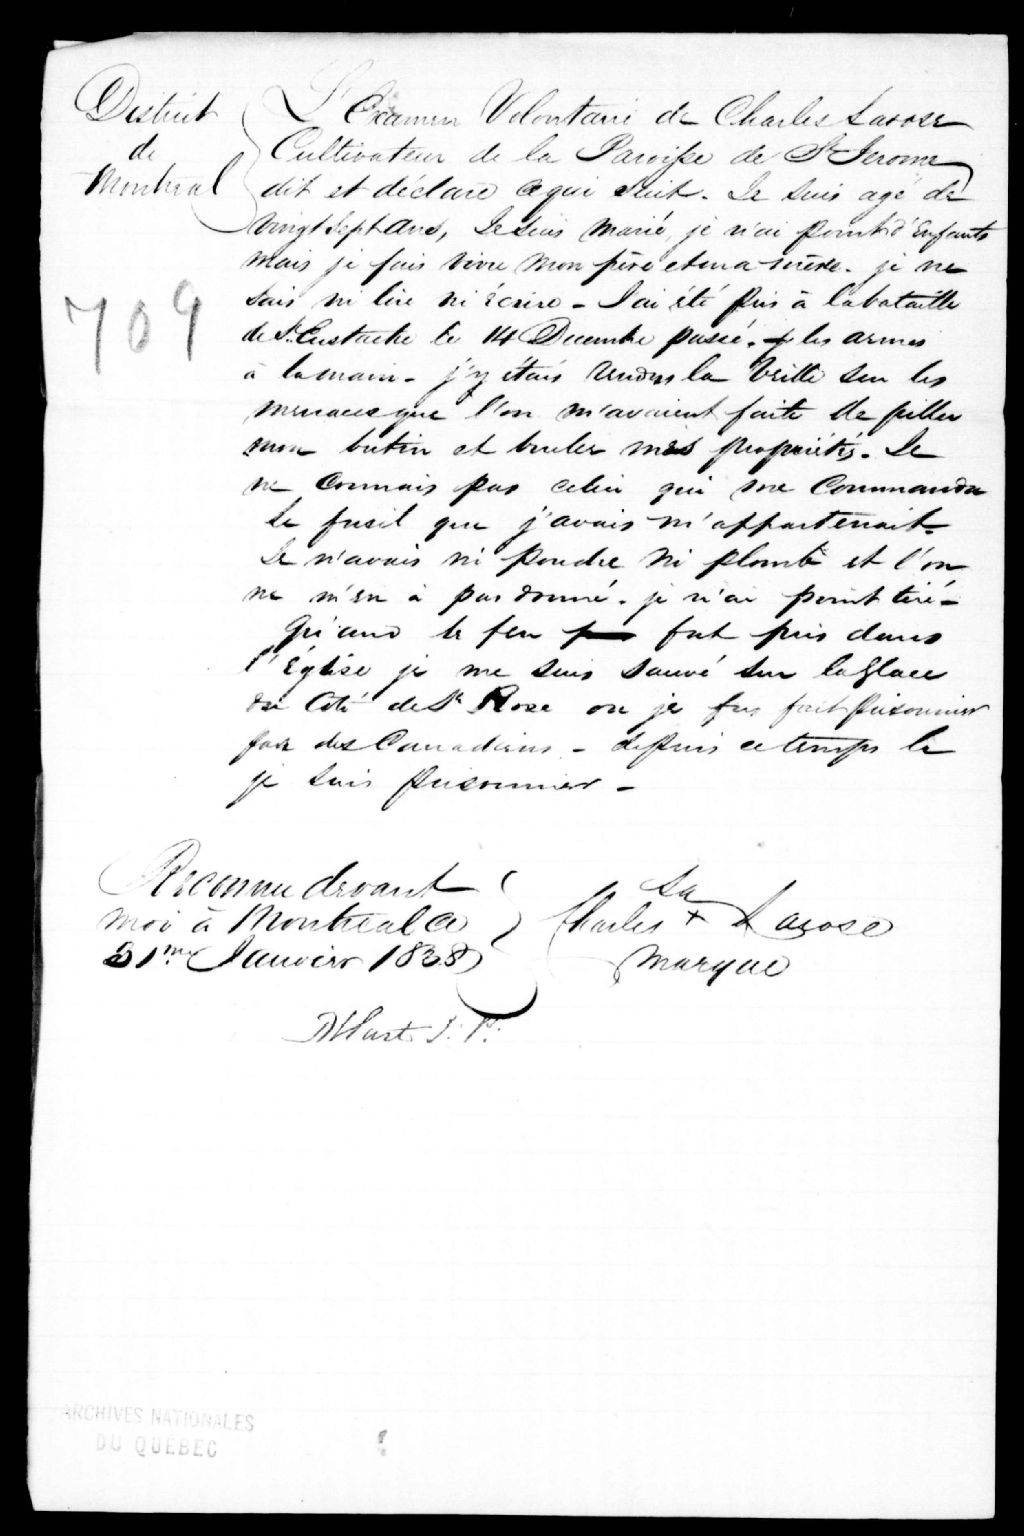 District
de
Montreal
L'Examen Volontaire de Charles Larose
Cultivateur de la Paroisse de St Jerome
dit et déclare ce qui suit. Je suis agé de
Vingt Sept ans, Je suis marié, je n'ai point d'Enfants
mais je fais vivre mon père et ma mère. je ne
sais ni lire ni écrire - J'ai été pris à la bataille
de St Eustache le 14 Decembre passé. les armes
à la main - j'y étais rendus la veille sur les
menaces que l'on m'avaient faite de piller
mon butin et bruler mes propriétés. Je
ne connais pas celui qui me Commanda
Le fusil que j'avais m'appartenait.
Je n'avais ni poudre ni plomb et l'on
ne m'en à pas donné. je n'ai point tiré -
Qu'and le feu fut pris dans
l'Église je me suis sauvé sur la Glace
du Coté de Ste Rose ou je fus fait prisonnier
par des Canadiens - depuis ce temps la
je suis prisonnier -
709
Reconnu devant
moi à Montreal ce
31me Janvier 1838
Sa
Charles + Larose
marque
J. P.
ARCHIVES NATIONALES
DU QUEBEC